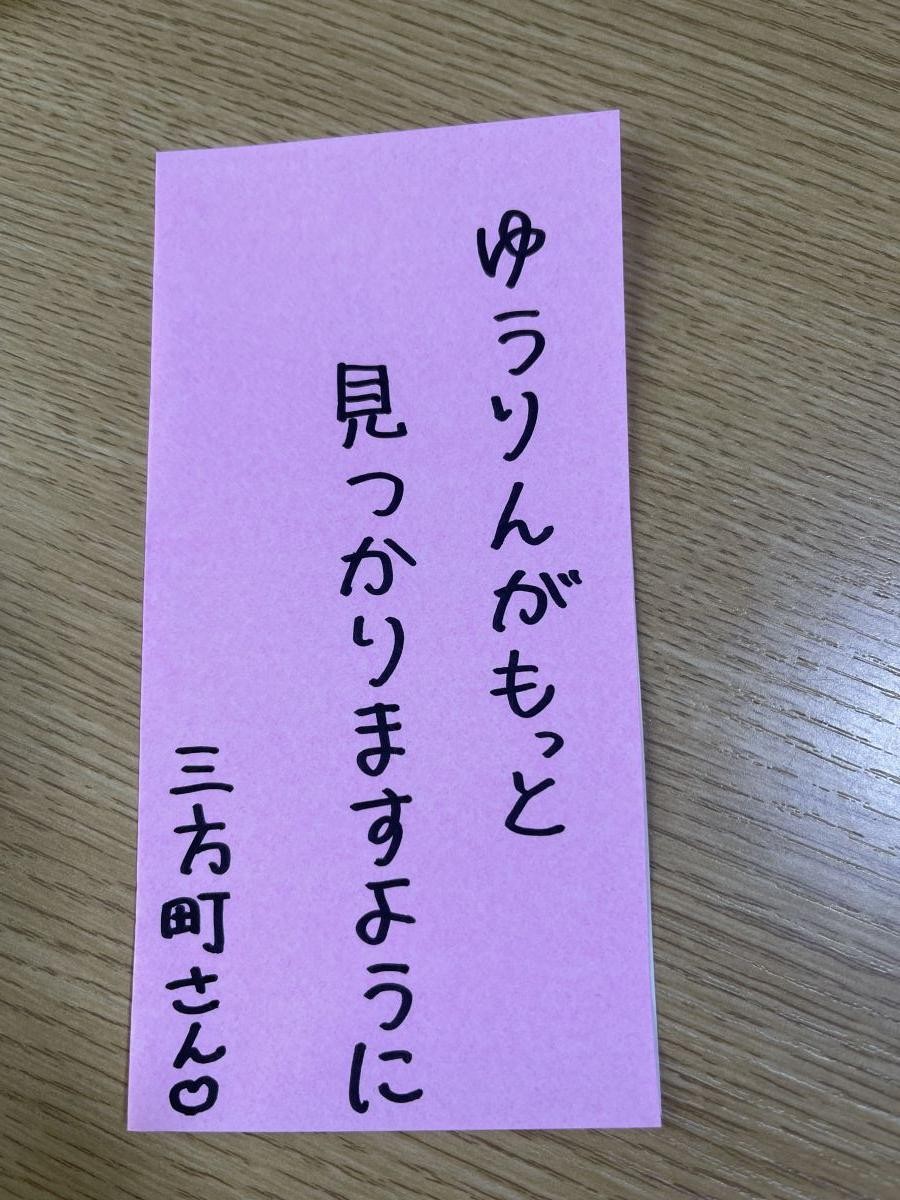 ゆうりんがもっと
見つかりますように
三方町さん♡